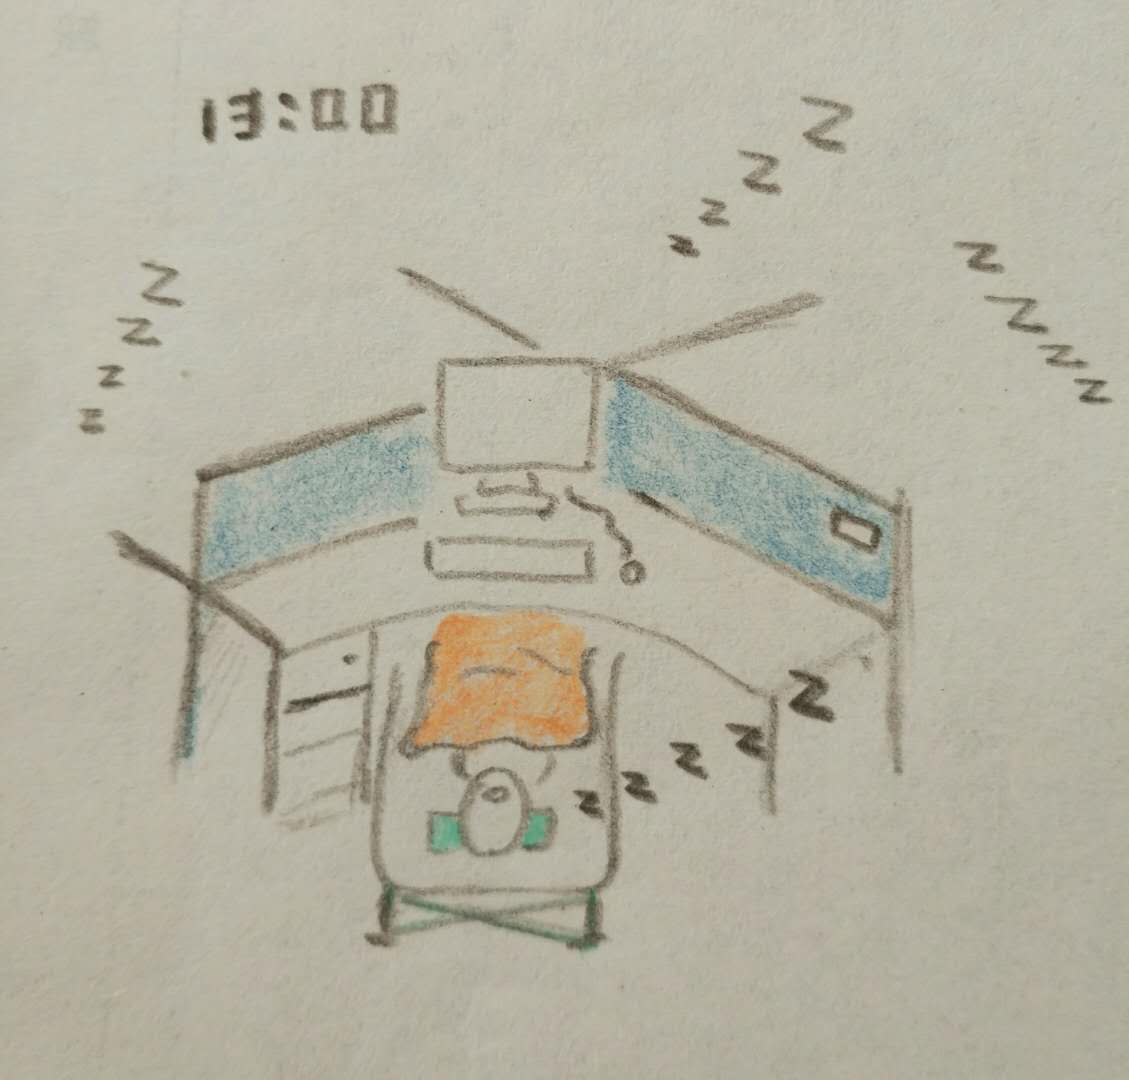 13:00
Z Z Z Z
Z Z Z Z
Z Z Z Z
Z Z Z Z Z